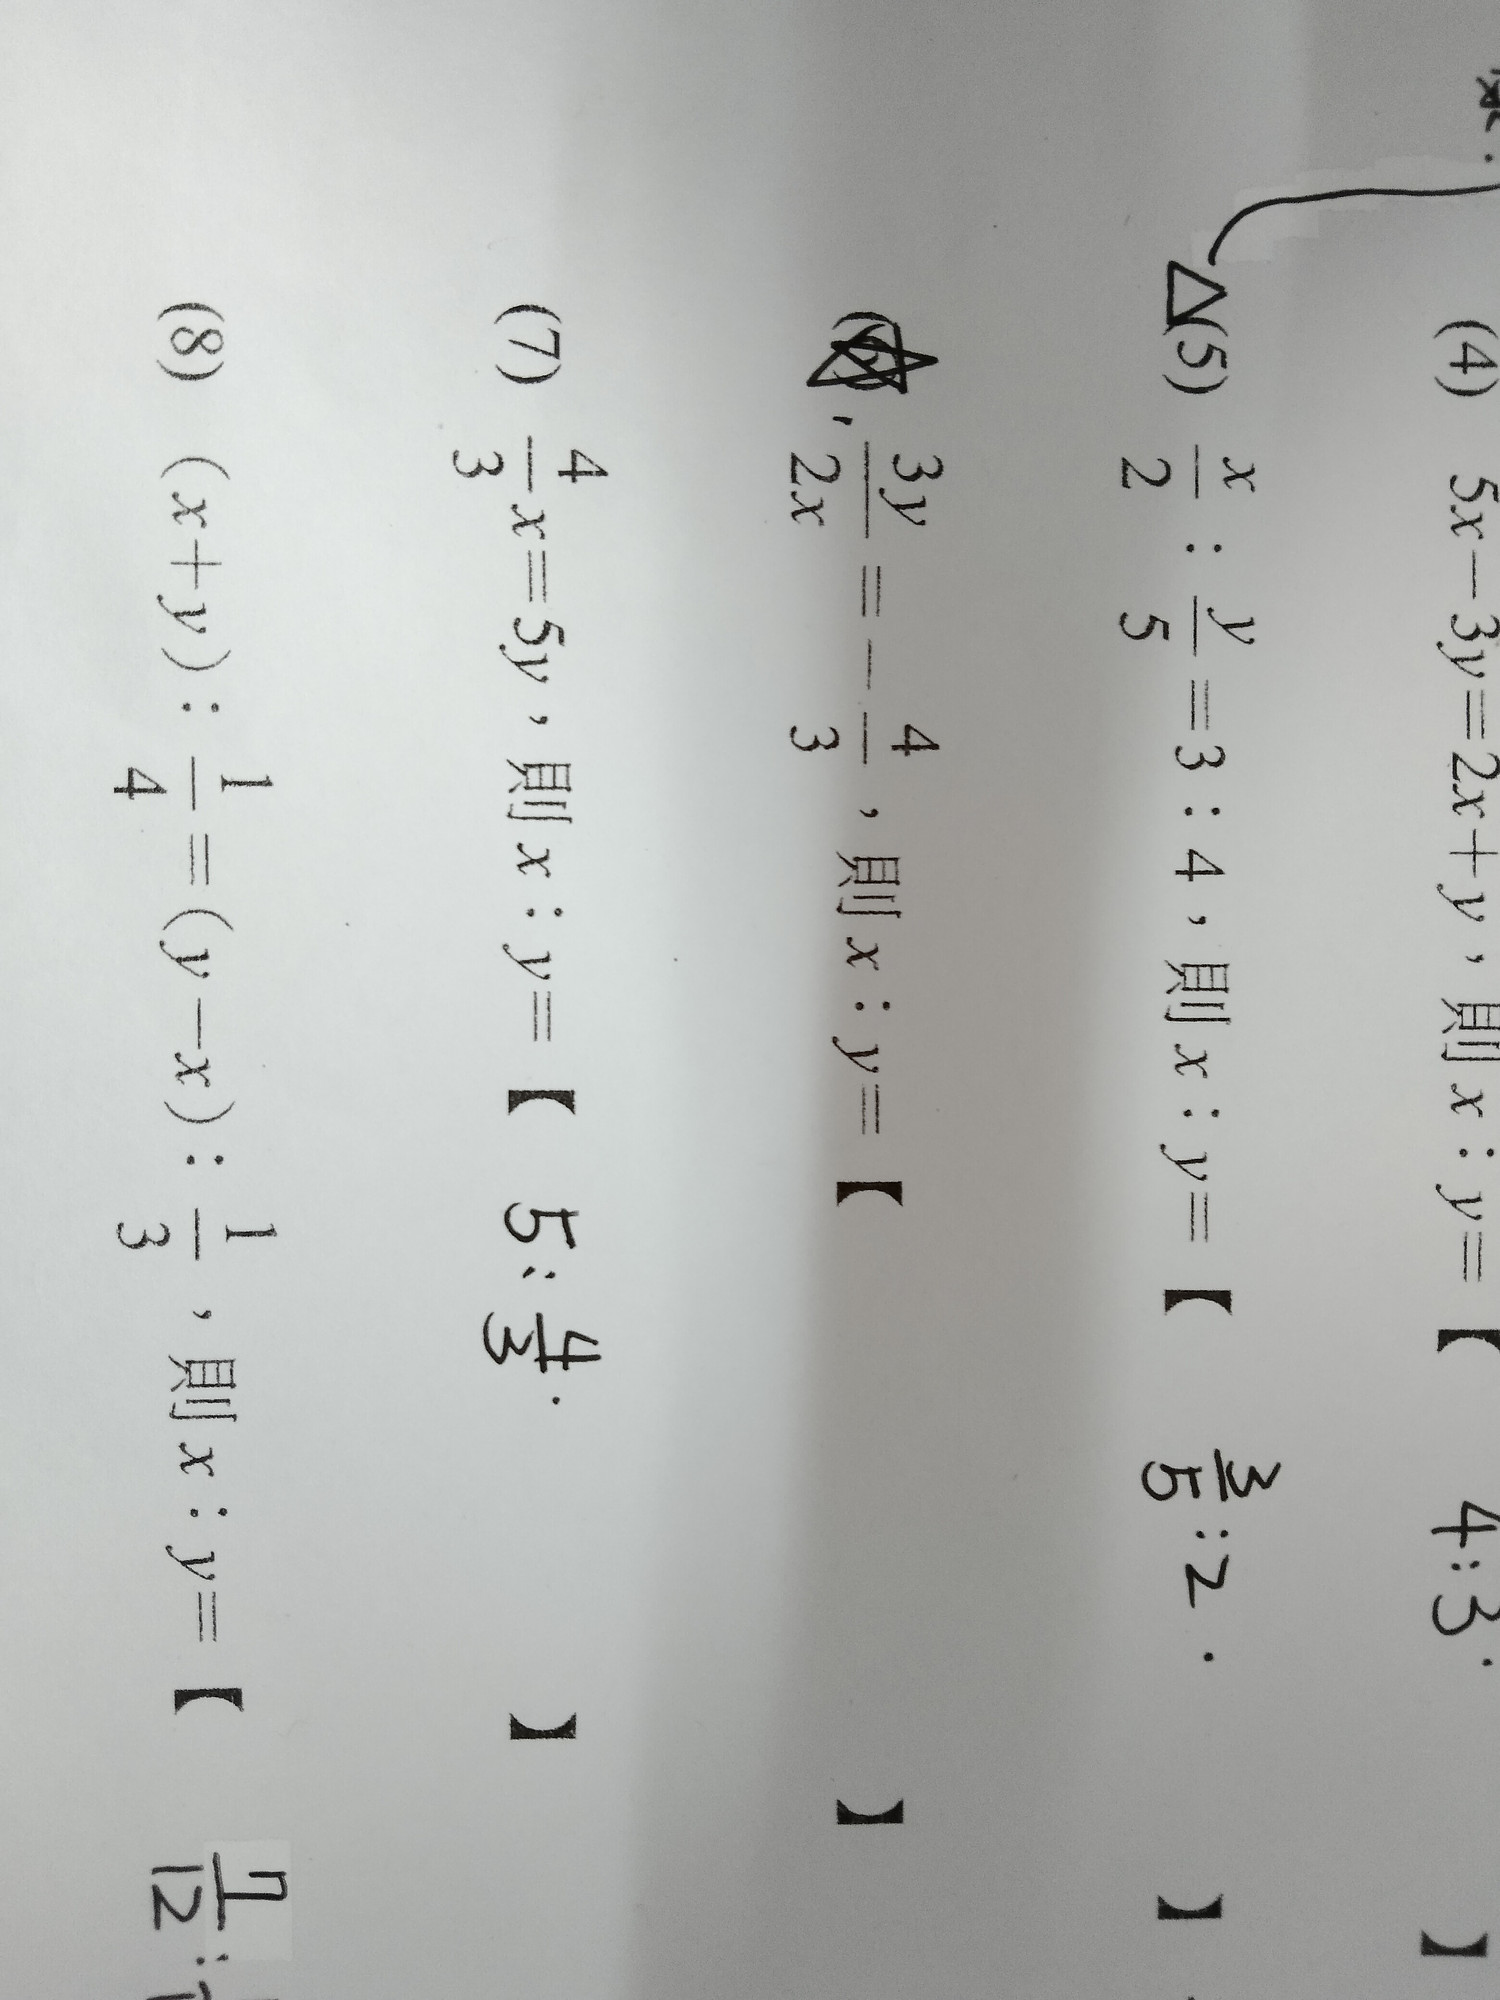 (4) 5x－3y＝2x＋y，則 x：y＝【 4:3. 】
△(5) x/2：y/5＝3：4，則 x：y＝【 3/5:2. 】
3y/2x＝－4/3，則 x：y＝【 】
(7) 4/3x＝5y，則 x：y＝【 5:4/3. 】
(8) (x＋y)：1/4＝(y－x)：1/3，則 x：y＝【 7/12: